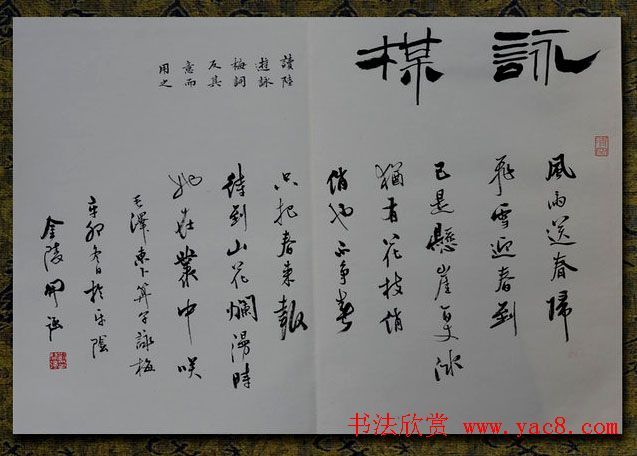 詠楳
讀陸
遊詠
梅詞
反其
意而
用之
風雨送春歸
飛雪迎春到
已是懸崖百丈冰
猶有花枝俏
俏也不爭春
只把春來報
待到山花爛漫時
她在叢中咲
毛澤東卜算子詠梅
辛卯冬日於平陰
金陵
书法欣赏 www.yac8.com